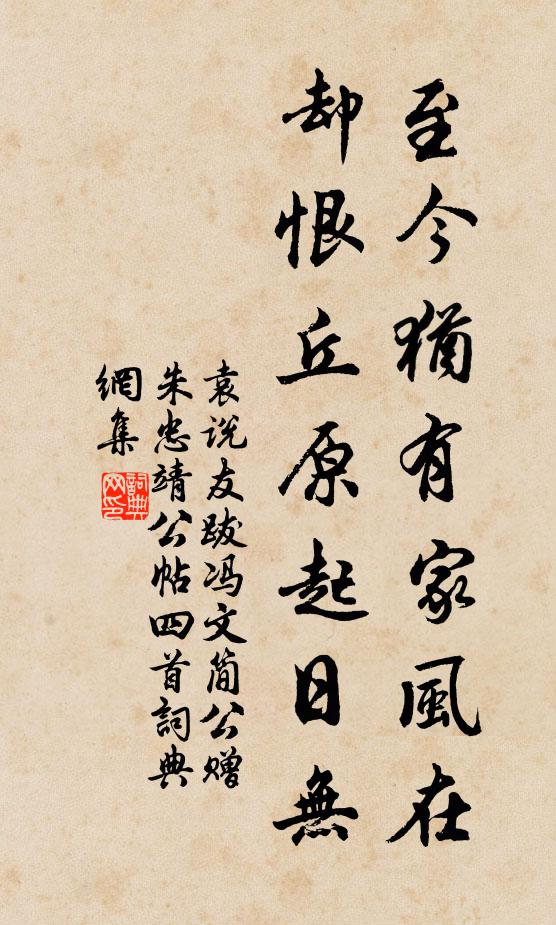 至今猶有家風在
却恨丘原起日無
袁说友跋冯文简公赠
朱忠靖公帖四首詞典
網集
詞典
网印